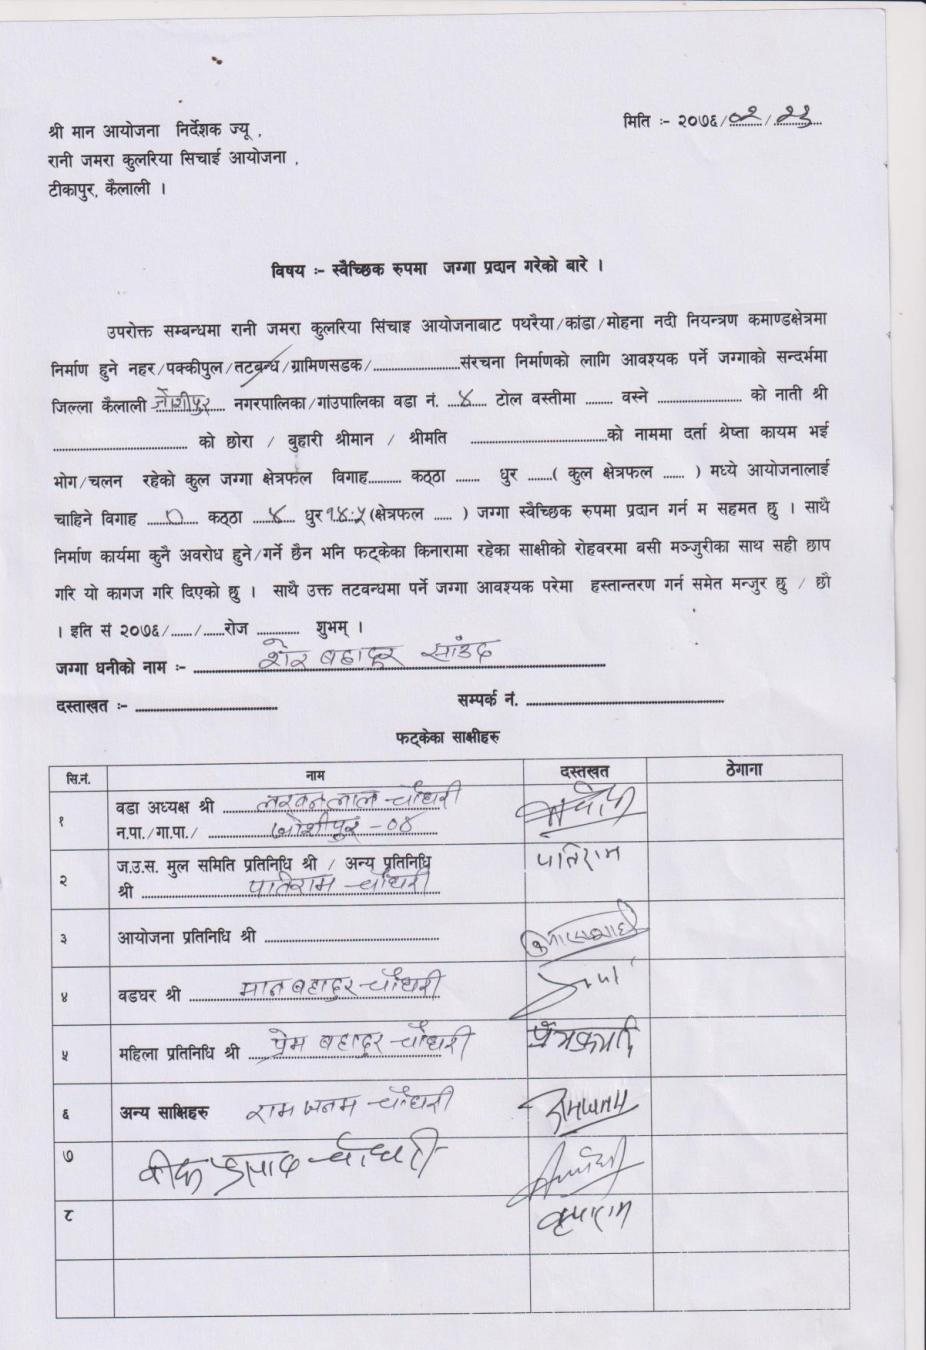 श्री मान आयोजना निर्देशक ज्यू ,
मिति :- २०७६/०२/२३
रानी जमरा कुलरिया सिचाई आयोजना ,
टीकापुर, कैलाली ।
विषय :- स्वैच्छिक रुपमा जग्गा प्रदान गरेको बारे ।
उपरोक्त सम्बन्धमा रानी जमरा कुलरिया सिंचाइ आयोजनाबाट पथरैया/कांडा/मोहना नदी नियन्त्रण कमाण्डक्षेत्रमा
निर्माण हुने नहर/पक्कीपुल/तटबन्ध/ग्रामिणसडक/........................संरचना निर्माणको लागि आवश्यक पर्ने जग्गाको सन्दर्भमा
जिल्ला कैलाली जोशीपुर नगरपालिका/गांउपालिका वडा नं. ४ टोल वस्तीमा ........ वस्ने ........................ को नाती श्री
................................ को छोरा / बुहारी श्रीमान / श्रीमति ................................को नाममा दर्ता श्रेष्ता कायम भई
भोग/चलन रहेको कुल जग्गा क्षेत्रफल विगाह......... कठ्ठा ....... धुर .......( कुल क्षेत्रफल ...... ) मध्ये आयोजनालाई
चाहिने विगाह ० कठ्ठा ४ धुर १४.५ (क्षेत्रफल ..... ) जग्गा स्वैच्छिक रुपमा प्रदान गर्न म सहमत छु । साथै
निर्माण कार्यमा कुनै अवरोध हुने/गर्ने छैन भनि फट्केका किनारामा रहेका साक्षीको रोहवरमा बसी मञ्जुरीका साथ सही छाप
गरि यो कागज गरि दिएको छु । साथै उक्त तटवन्धमा पर्ने जग्गा आवश्यक परेमा हस्तान्तरण गर्न समेत मन्जुर छु / छौ
। इति सं २०७६/....../......रोज ............ शुभम् ।
जग्गा धनीको नाम :- शेर बहादूर साउद
दस्ताखत :- ................................ सम्पर्क नं. ................................
फट्केका साक्षीहरु
सि.नं. नाम दस्तखत ठेगाना
१ वडा अध्यक्ष श्री लखनलाल चौधरी
न.पा./गा.पा./ जोशीपुर -०४
२ ज.उ.स. मुल समिति प्रतिनिधि श्री / अन्य प्रतिनिधि पातिराम
श्री पातिराम चौधरी
३ आयोजना प्रतिनिधि श्री ................................
४ वडघर श्री मान बहादुर चौधरी
५ महिला प्रतिनिधि श्री प्रेम बहादुर चौधरी
६ अन्य साक्षिहरु राम जनम चौधरी रामजनम
७ चौधरी
८